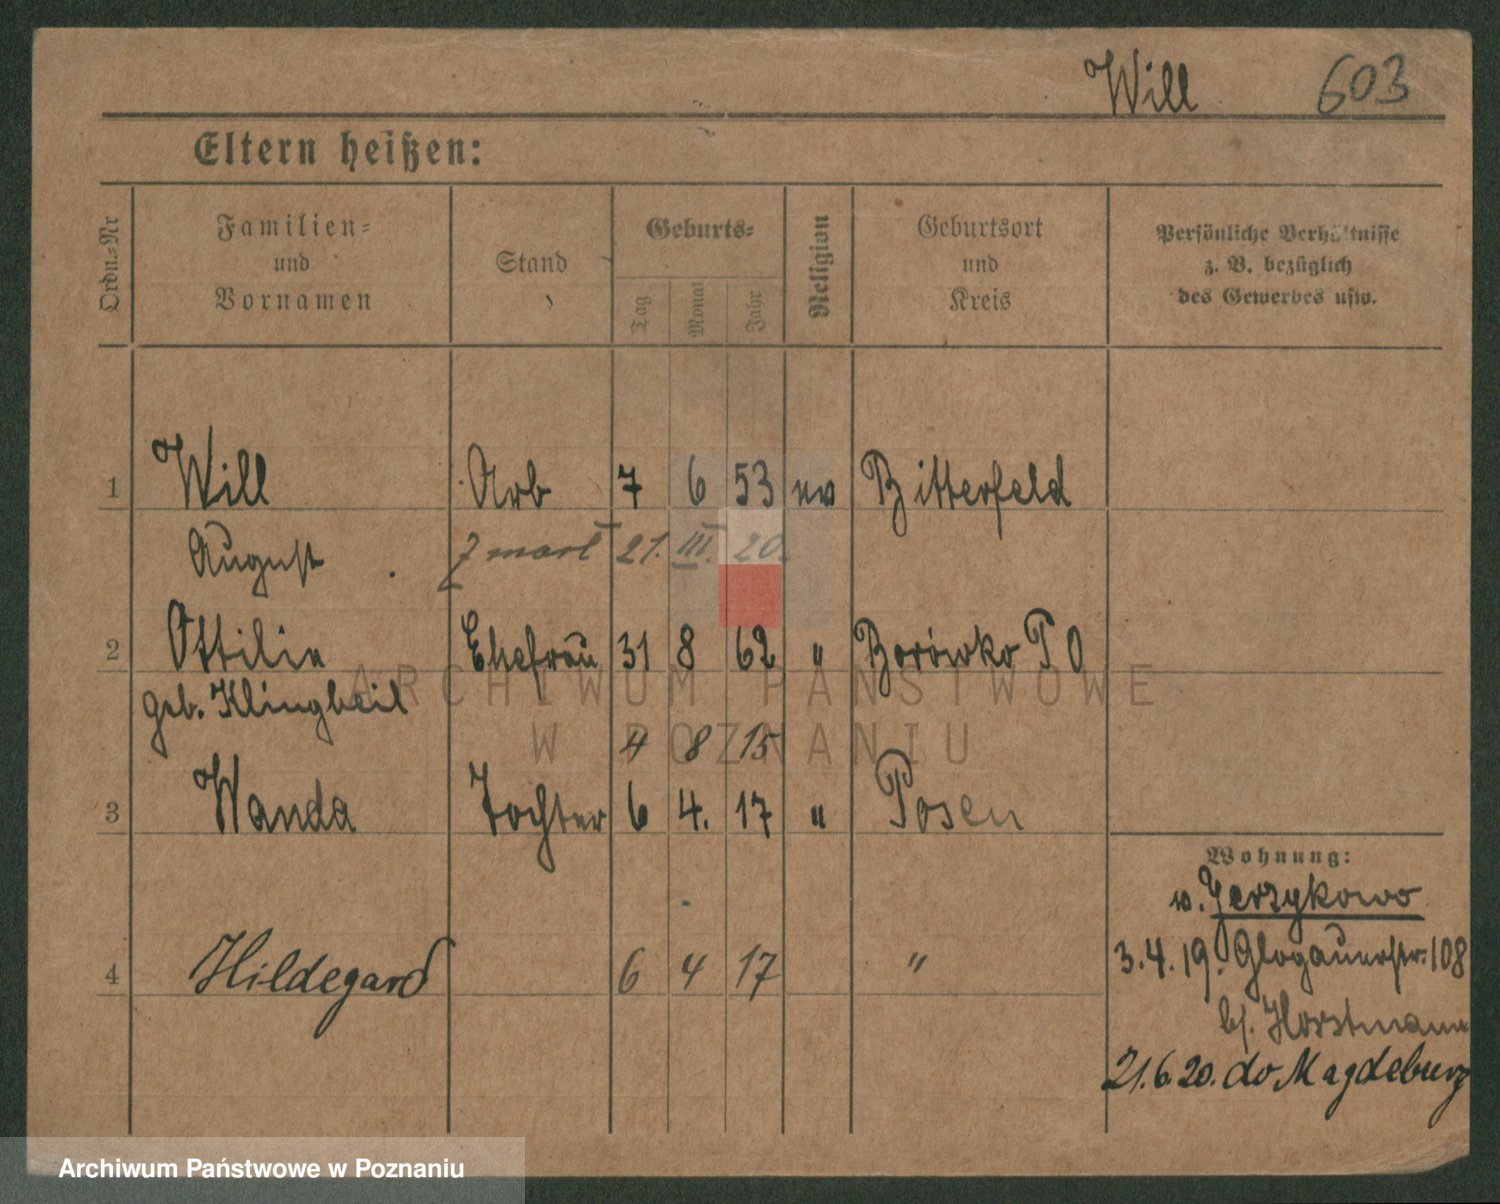 Will 603
Eltern heißen:
Ordn.-Nr
Familien-
und
Vornamen
Stand
Geburts-
Tag
Monat
Jahr
Religion
Geburtsort
und
Kreis
Persönliche Verhältnisse
z. B. bezüglich
des Gewerbes usw.
1 Will Arb 7 6 53 ev Bitterfeld
August Zmarł 21. III. 20.
2 Ottilie Ehefrau 31 8 62 " Borówko P O
geb. Klingbeil
4 8 15
3 Wanda Tochter 6 4. 17 " Posen
4 Hildegard 6 4 17 "
Wohnung:
v. Jerzykowo
3.4.19. Glogauerstr. 108
bf. Horstmann
21.6.20. do Magdeburg
ARCHIWUM PAŃSTWOWE
W POZNANIU
Archiwum Państwowe w Poznaniu